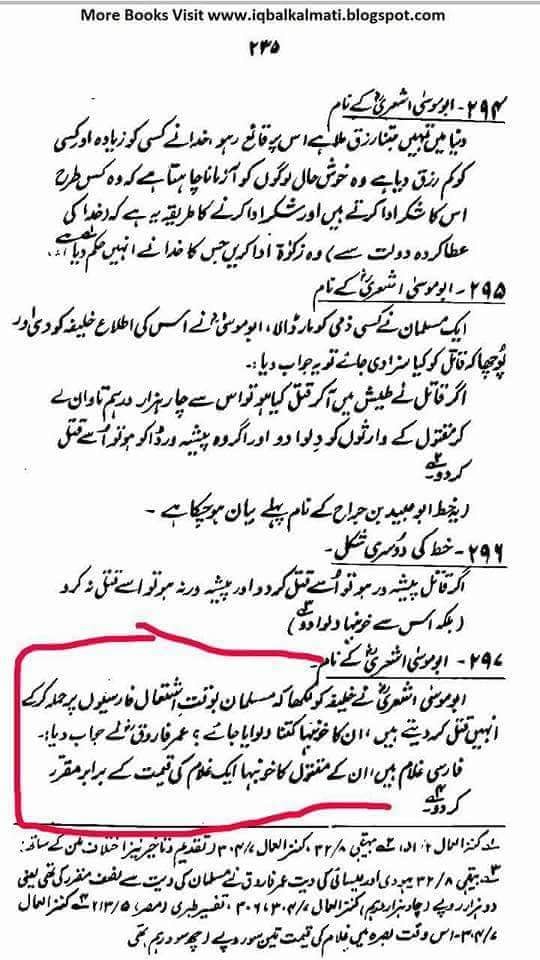 More Books Visit www.iqbalkalmati.blogspot.com
۲۳۵
۲۹۴- ابوموسیٰ اشعریؓ کے نام
دنیا میں تمہیں جتنا رزق ملا ہے اس پر قانع رہو، خدا نے کسی کو زیادہ اور کسی
کو کم رزق دیا ہے وہ خوش حال لوگوں کو آزمانا چاہتا ہے کہ وہ کس طرح
اس کا شکر ادا کرتے ہیں اور شکر ادا کرنے کا طریقہ یہ ہے کہ (خدا کی
عطا کردہ دولت سے) وہ زکوٰۃ ادا کریں جس کا خدا نے انہیں حکم دیا ہے
۲۹۵- ابوموسیٰ اشعریؓ کے نام
ایک مسلمان نے کسی ذمی کو مار ڈالا، ابوموسیٰؓ نے اس کی اطلاع خلیفہ کو دی اور
پوچھا کہ قاتل کو کیا سزا دی جائے تو یہ جواب دیا:-
اگر قاتل نے طیش میں آکر قتل کیا ہو تو اس سے چار ہزار درہم تاوان لے
کر مقتول کے وارثوں کو دلوا دو اور اگر وہ پیشہ ور ڈاکو ہو تو اُسے قتل
کر دو۔۲
(یہ خط ابو عبید بن جراح کے نام پہلے بیان ہو چکا ہے -
۲۹۶- خط کی دُوسری شکل -
اگر قاتل پیشہ ور ہو تو اُسے قتل کر دو اور پیشہ ور نہ ہو تو اُسے قتل نہ کرو
(بلکہ اس سے خونبہا دلوا دو۳)
۲۹۷- ابوموسیٰ اشعریؓ کے نام -
ابوموسیٰ اشعریؓ نے خلیفہ کو لکھا کہ مسلمان بوقتِ اشتعال فارسیوں پر حملہ کرکے
انہیں قتل کر دیتے ہیں، ان کا خونبہا کتنا دلوایا جائے؟ عمر فاروقؓ نے جواب دیا:-
فارسی غلام ہیں، ان کے مقتول کا خونبہا ایک غلام کی قیمت کے برابر مقرر
کر دو۔۴
۱ کنز العمال ۲ ۲ بیہقی ۳۲/۸، کنز العمال ۳۰۴/۷ (تقدیم و تاخیر نیز اختلاف متن کے ساتھ:
۳ بیہقی ۳۲/۸ یہودی اور عیسائی کی دیت عمر فاروق نے مسلمان کی دیت سے نصف مقرر کی تھی یعنی
دو ہزار روپے (چار ہزار درہم) کنز العمال ۳۰۴/۷، ۳۰۶، تفسیر طبری (مصر) ۲۱۳/۵ ۴ کنز العمال
۳۰۴/۷- اس وقت بصرہ میں غلام کی قیمت تین سو روپے (چھ سو درہم) تھی